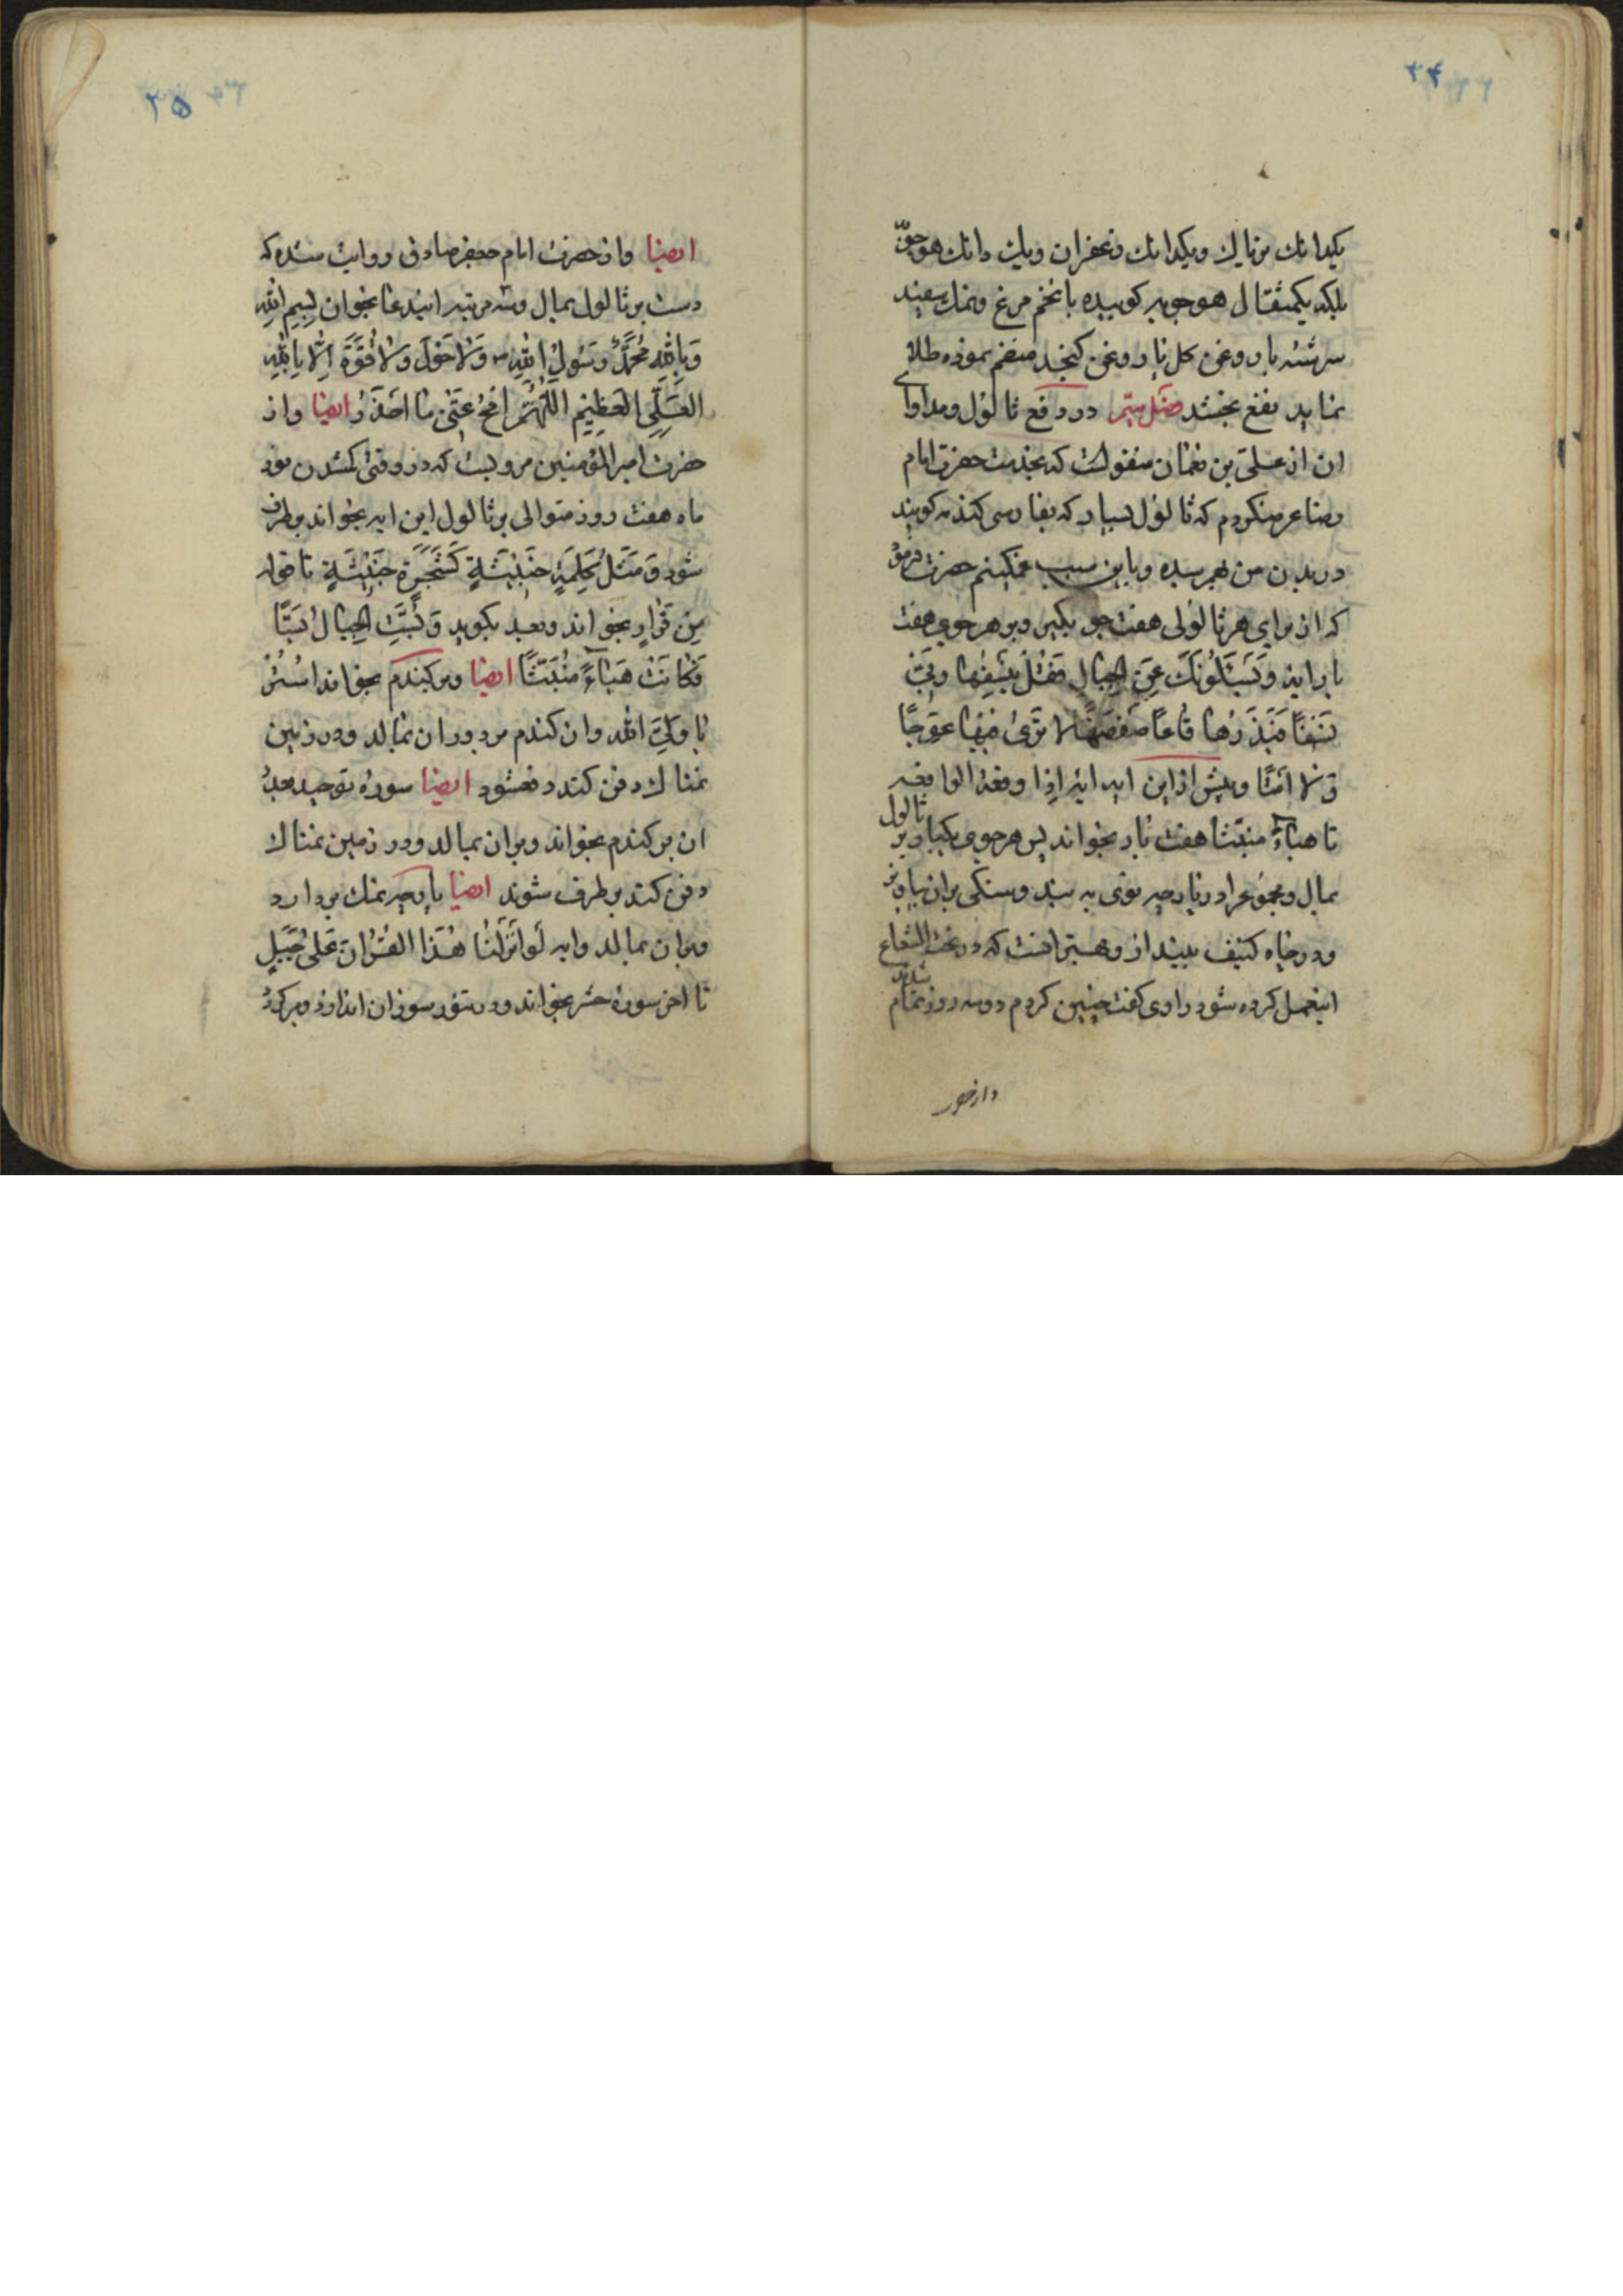 ۲۴
یکدانك تریاك ویکدانك زعفران ویك دانك هوجوّ
بلکه یکمثقال هوجویه کوبیده باتخم مرغ ونمك سفید
سرشته باروغن کل یاروغن کنجد منضم نموده طلا
نماید نفع بخشد فصل ستم در دفع ثالول ومداوای
ان از علی بن نعمان منقولست که بخدمت حضرت امام
رضا عرضکردم که ثالول بسیار که بفارسی کندمه کویند
در بدن من بهم رسیده وباین سبب غمکینم حضرت فرمود
که از برای هر ثالولی هفت جو بکیر وبر هر جوی هفت
بار ایه وَیَسْئَلُونَكَ عَنِ الْجِبالِ فَقُلْ یَنْسِفُها رَبّی
نَسْفًا فَیَذَرُها قاعًا صَفْصَفًا لا تَریٰ فیها عِوَجًا
وَلا اَمْتًا وپیش از این ایه ایه اِذا وقعة الواقعه
تا هباءً منبثّا هفت بار بخواند پس هر جوی بکیر وبر ثالول
بمال ومجموعرا در پارچه نوی به بند وسنکی بران بیاویز
ودر چاه کنیف بینداز وبهتر انست که در تحت الشعاع
اینعمل کرده شود راوی کفت چنین کردم دوسه روز تمام شدند
واز حضر
۲۵
ایضا واز حضرت امام جعفر صادق روایت شده که
دست بر ثالول بمال وسه مرتبه ایندعا بخوان بِسْمِ اللهِ
وَبِاللهِ مُحَمَّدٌ رَسُولُ اللهِ ص وَلا حَوْلَ وَلا قُوَّةَ اِلّا بِاللهِ
العَلِّیِ العَظِیْمِ اللّٰهُمَّ امْحُ عَنّی ما اَحْذَرُ ایضا واز
حضرت امیر المؤمنین مرویست که در وقت کمشدن نور
ماه هفت روز متوالی بر ثالول این ایه بخواند برطرف
شود وَمَثَلُ کَلِمَةٍ خَبیْثَةٍ کَشَجَرَةٍ خَبیْثَةٍ تا قوله
مِنْ قَرارٍ بخواند وبعد بکوید وَبُسَّتِ الْجِبالُ بَسًّا
فَکانَتْ هَباءً مُنْبَثًّا ایضا وبر کندم بخواند اُسْتُرْ
یا وَلِیَّ الله وان کندم بردوران بمالد ودر زمین
نمناك دفن کند دفعشود ایضا سوره توحید بعدُ
ان بر کندم بخواند وبران بمالد ودر زمین نمناك
دفن کند برطرف شوند ایضا پارچه نمك بردارد
وبران بمالد وایه لَوْ اَنْزَلْنا هٰذَا الْقُرْانَ عَلیٰ جَبَلٍ
تا اخر سوره حشر بخواند ودر تنور سوزان اندازد وبرکردُ